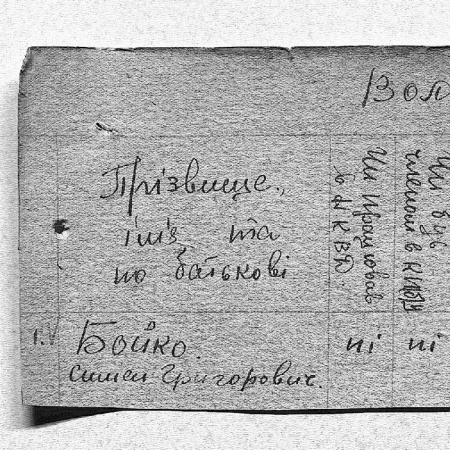 Вол
Прізвище,
ім'я та
по батькові
Чи працював
в НКВД.
Чи був
членом в
1. Бойко.
Семен Григорович.
ні ні